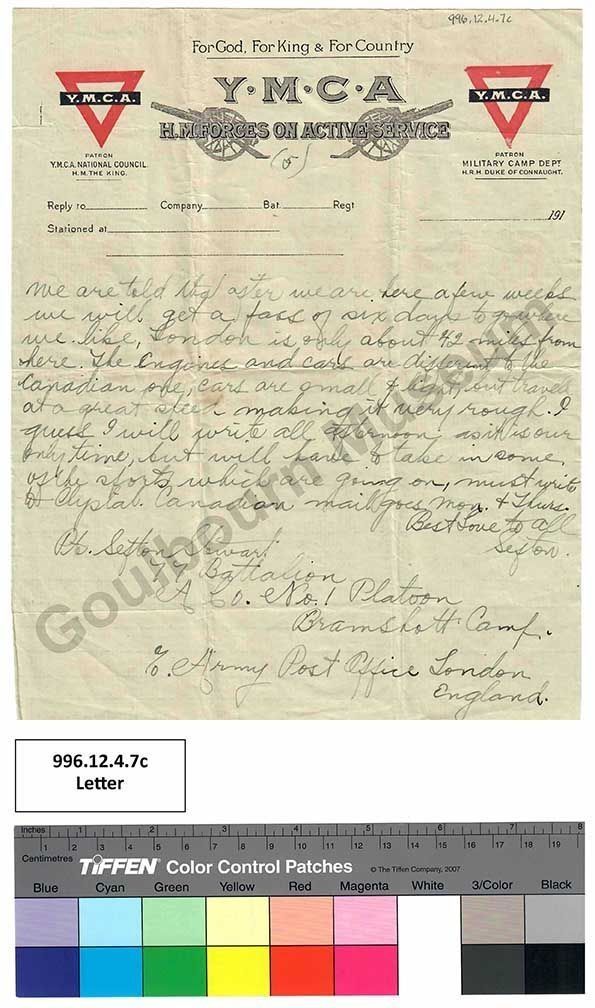 996.12.4.7c
For God, For King & For Country
Y·M·C·A
H.M. FORCES ON ACTIVE SERVICE
(5)
Y.M.C.A.
PATRON
Y.M.C.A. NATIONAL COUNCIL.
H.M. THE KING.
Y.M.C.A.
PATRON
MILITARY CAMP DEPT
H.R.H DUKE OF CONNAUGHT.
Reply to Company Bat. Regt
191
Stationed at
We are told that after we are here a few weeks
we will get a pass of six days to go where
we like, London is only about 42 miles from
here. The Engines and cars are different to the
Canadian one, cars are small & light, but travel
at a great speed making it very rough. I
guess I will write all afternoon, as it is our
only time, but will have to take in some
of the sports, which are going on, must write
to Clystal. Canadian mail goes Mon. & Thurs.
Best Love to all
Sefton.
Pte. Sefton Stewart
77 Battalion
A Co. No. 1 Platoon
Bramshott Camp.
℅ Army Post Office London
England.
Goulbourn Museum
996.12.4.7c
Letter
Inches 1 2 3 4 5 6 7 8
1 2 3 4 5 6 7 8 9 10 11 12 13 14 15 16 17 18 19
Centimetres
TIFFEN Color Control Patches © The Tiffen Company, 2007
Blue Cyan Green Yellow Red Magenta White 3/Color Black